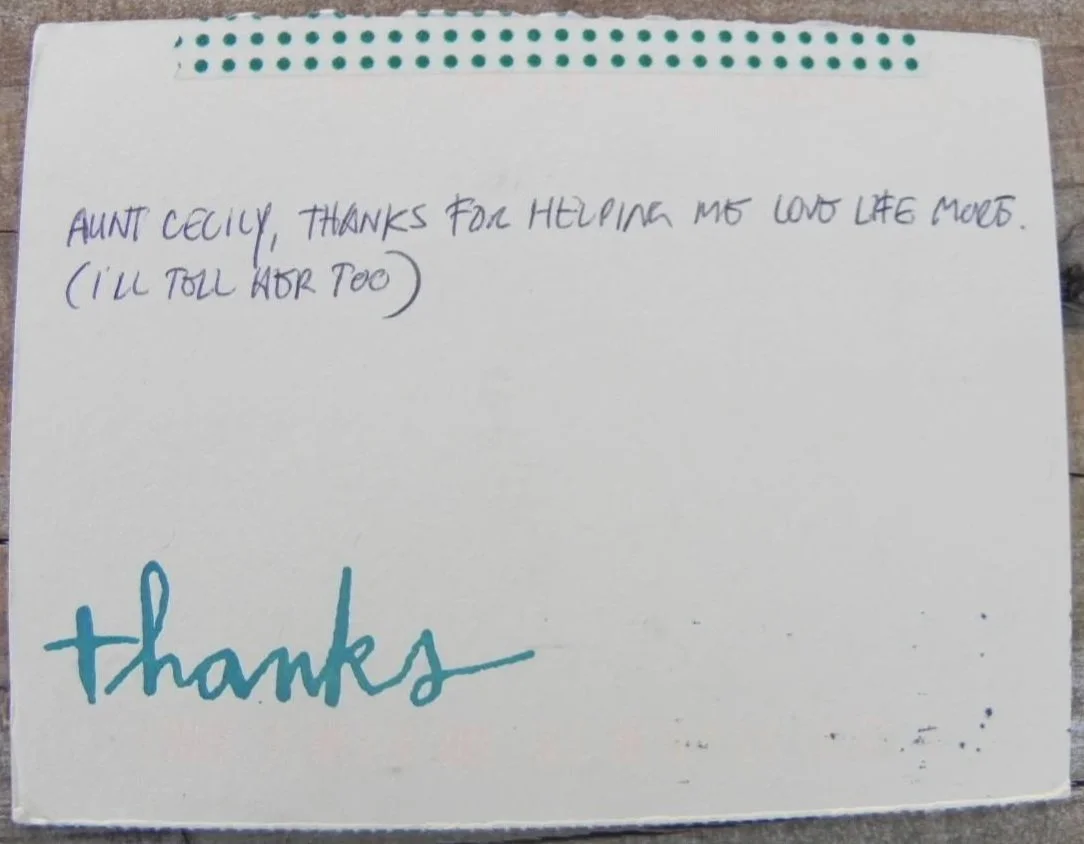 AUNT CECILY, THANKS FOR HELPING ME LOVE LIFE MORE.
(I'LL TELL HER TOO)
thanks